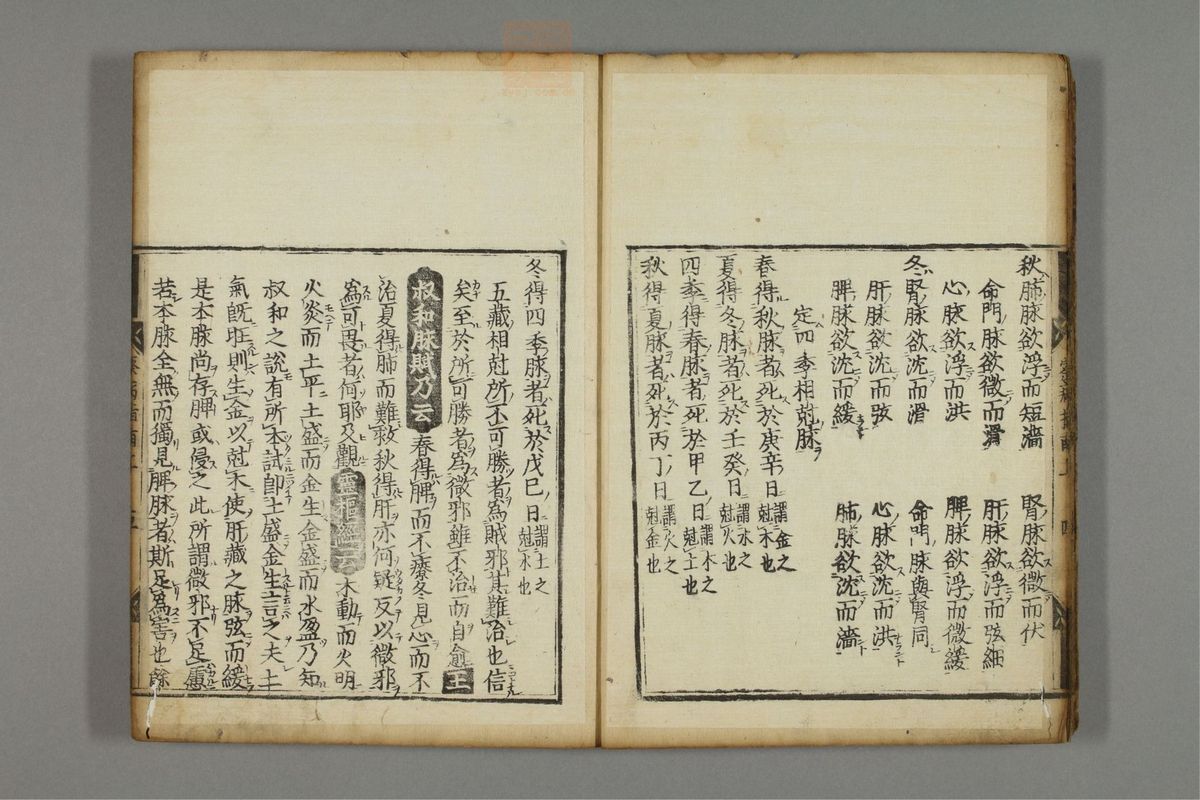 秋肺脉欲浮而短濇 腎脉欲微而伏
命門脉欲微而滑 肝脉欲浮而弦細
心脉欲浮而洪 脾脉欲浮而微緩
冬腎脉欲沈而滑 命門脉與腎同
肝脉欲沈而弦 心脉欲沈而洪
脾脉欲沈而緩 肺脉欲沈而濇
定四季相尅脉
春得秋脉者死於庚辛日謂金之尅木也
夏得冬脉者死於壬癸日謂水之尅火也
四季得春脉者死於甲乙日謂木之尅土也
秋得夏脉者死於丙丁日謂火之尅金也
冬得四季脉者死於戊巳日謂土之尅水也
五藏相尅所不可勝者爲賊邪其難治也信
矣至於所可勝者爲微邪雖不治而自愈王
叔和脉賦乃云春得脾而不療冬見心而不
治夏得肺而難救秋得肝亦何疑反以微邪
爲可畏者何耶及觀靈樞經云木動而火明
火炎而土平土盛而金生金盛而水盈乃知
叔和之說有所本試卽土盛金生言之夫土
氣旣旺則生金以尅木使肝藏之脉弦而緩
是本脉尚存脾或侵之此所謂微邪不足慮
若本脉全無而獨見脾脉者斯足爲害也餘